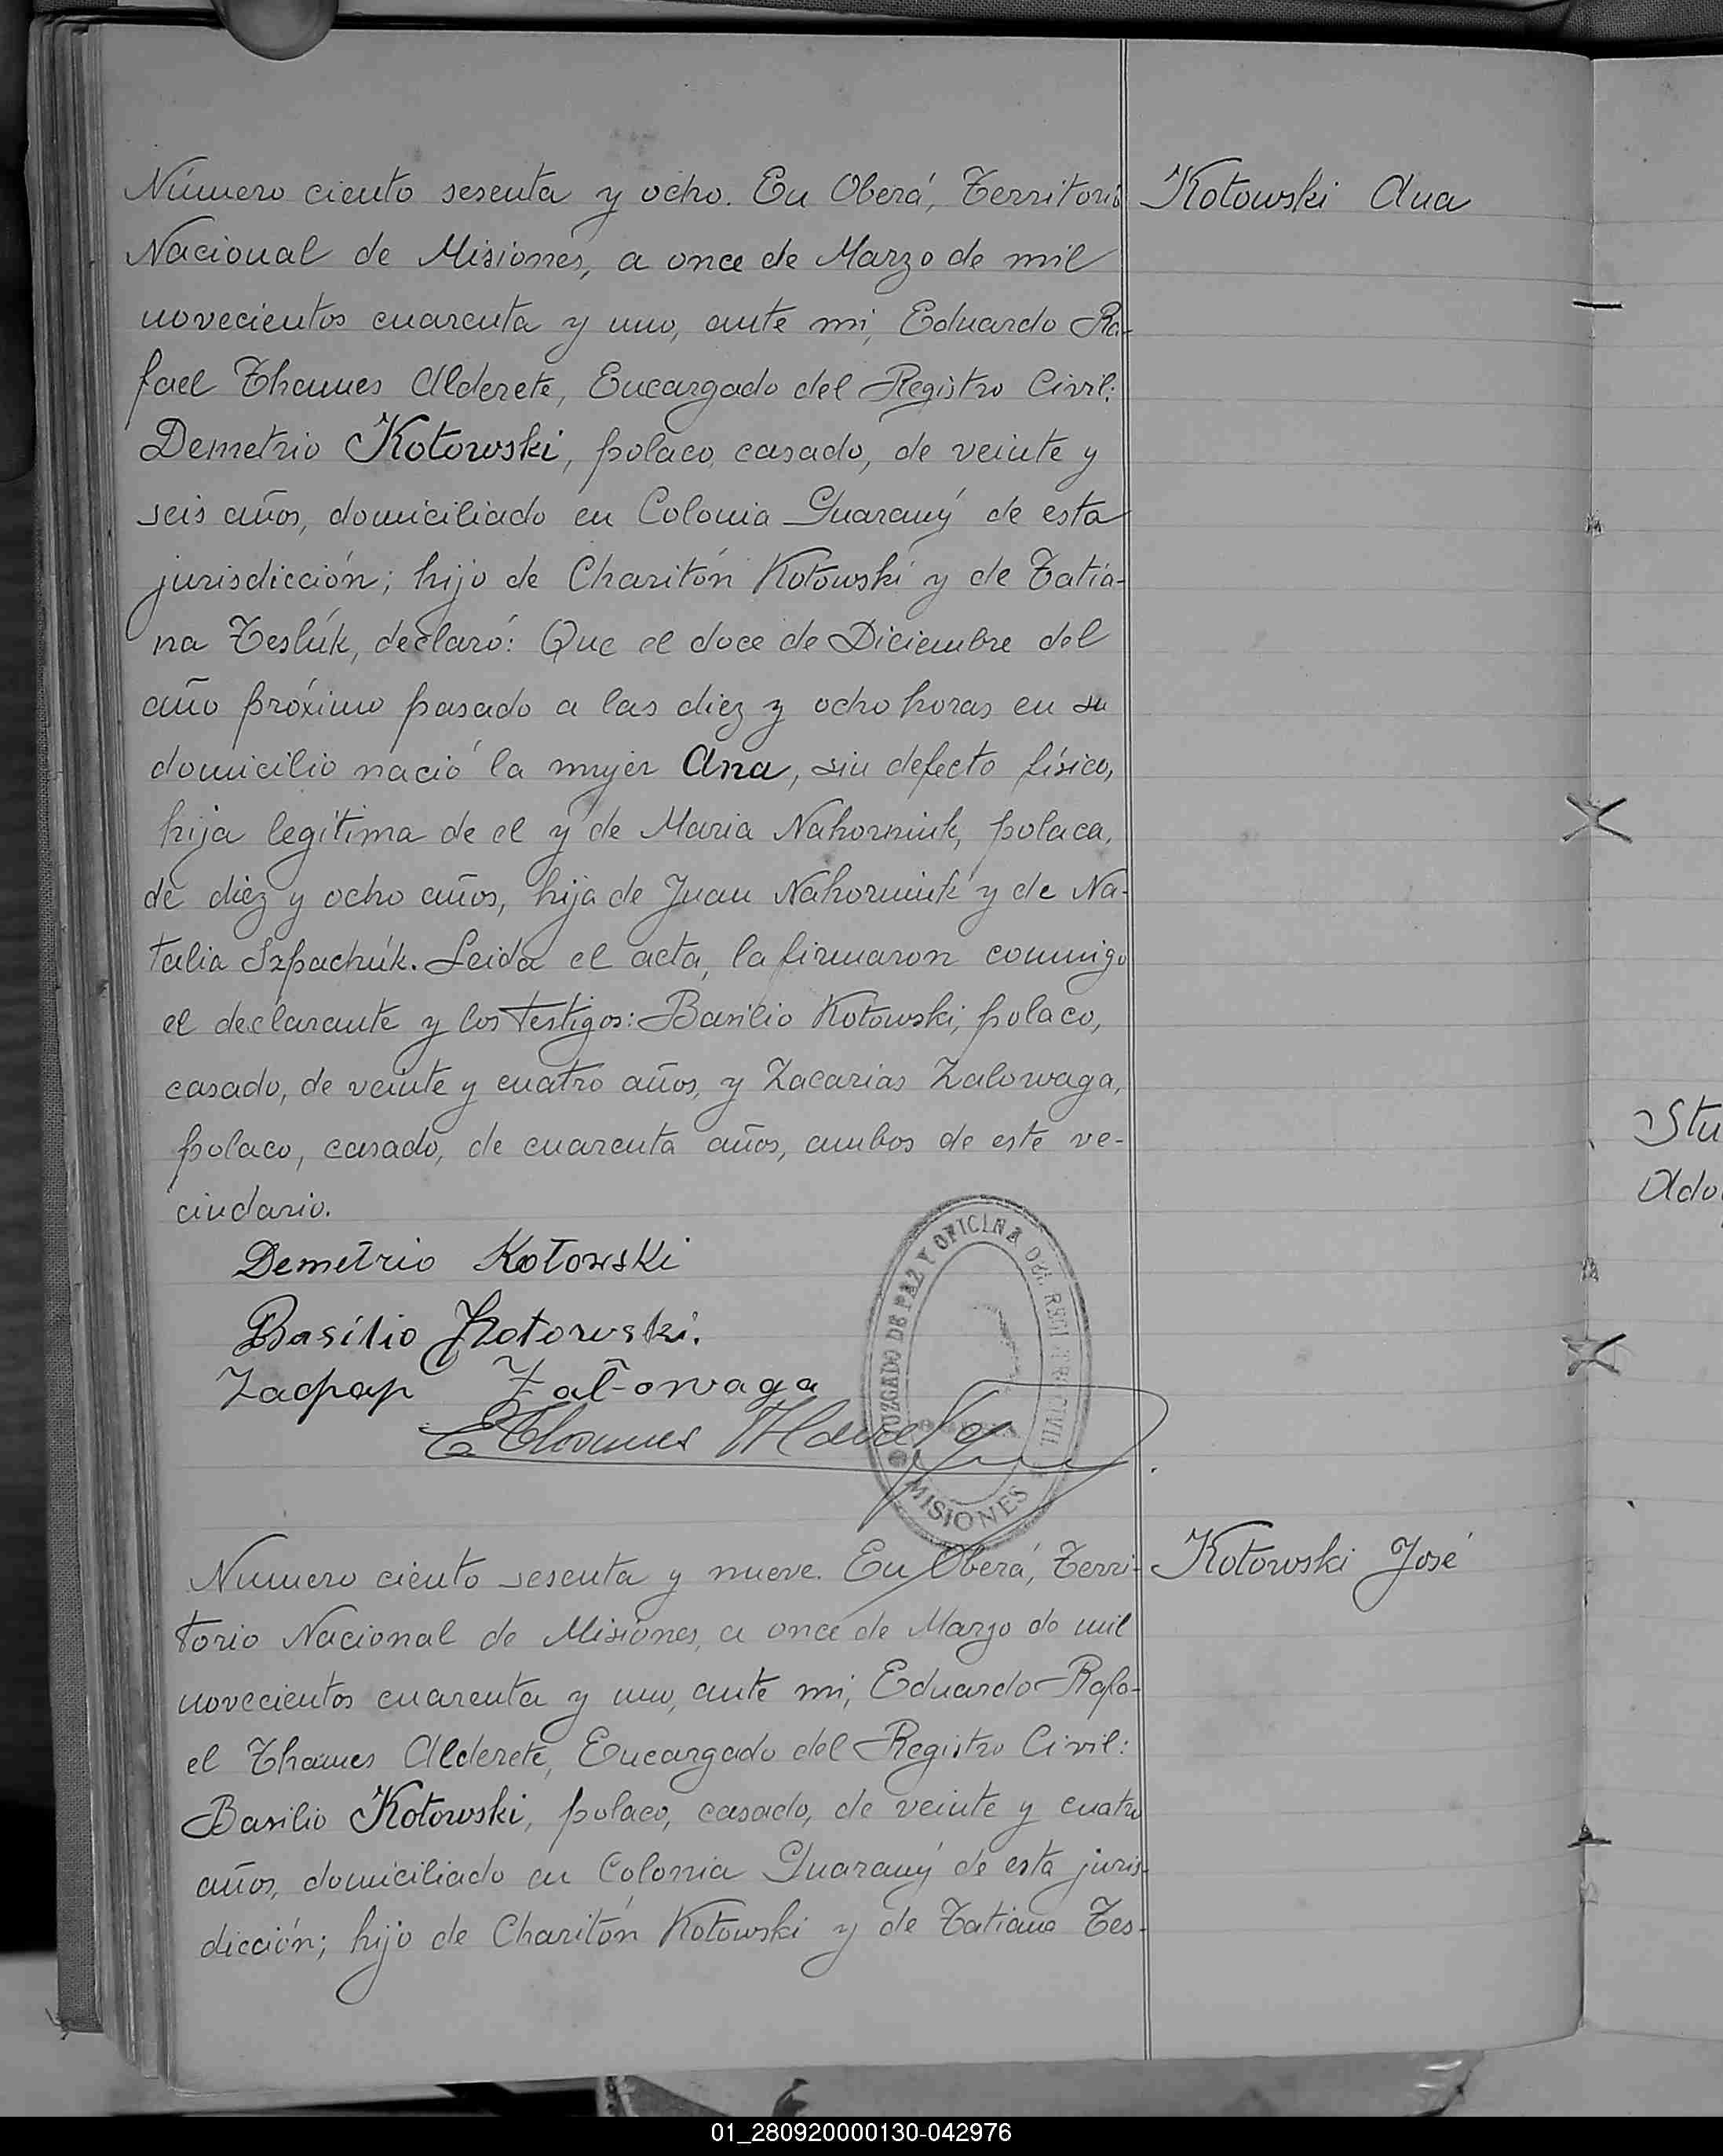 Número ciento sesenta y ocho. En Oberá, Territorio
Kotowski Ana
Nacional de Misiones, a once de Marzo de mil
novecientos cuarenta y uno, ante mi, Eduardo Ra-
fael Thames Alderete, Encargado del Registro Civil:
Demetrio Kotowski, polaco, casado, de veinte y
seis años, domiciliado en Colonia Guarany de esta
jurisdicción; hijo de Charitón Kotowski y de Tatia-
na Teslúk, declaró: Que el doce de Diciembre del
año próximo pasado a las diez y ocho horas en su
domicilio nació la mujer Ana, sin defecto físico,
hija legítima de el y de Maria Nahorniuk, polaca,
de diez y ocho años, hija de Juan Nahorniuk y de Na-
talia Szpachúk. Leida el acta, la firmaron conmigo
el declarante y los testigos: Basilio Kotowski, polaco,
casado, de veinte y cuatro años, y Zacarias Zalowaga,
polaco, casado, de cuarenta años, ambos de este ve-
cindario.
Demetrio Kotowski
Basilio Kotowski.
Zalowaga
E Thames Alderete
JUZGADO DE PAZ Y OFICINA DEL REGISTRO CIVIL
MISIONES
Numero ciento sesenta y nueve. En Oberá, Terri-
Kotowski José
torio Nacional de Misiones, a once de Marzo de mil
novecientos cuarenta y uno, ante mi, Eduardo Rafa-
el Thames Alderete, Encargado del Registro Civil:
Basilio Kotowski, polaco, casado, de veinte y cuatro
años, domiciliado en Colonia Guarany de esta juris-
dicción; hijo de Charitón Kotowski y de Tatiana Tes-
Stu
Ado
01_280920000130-042976